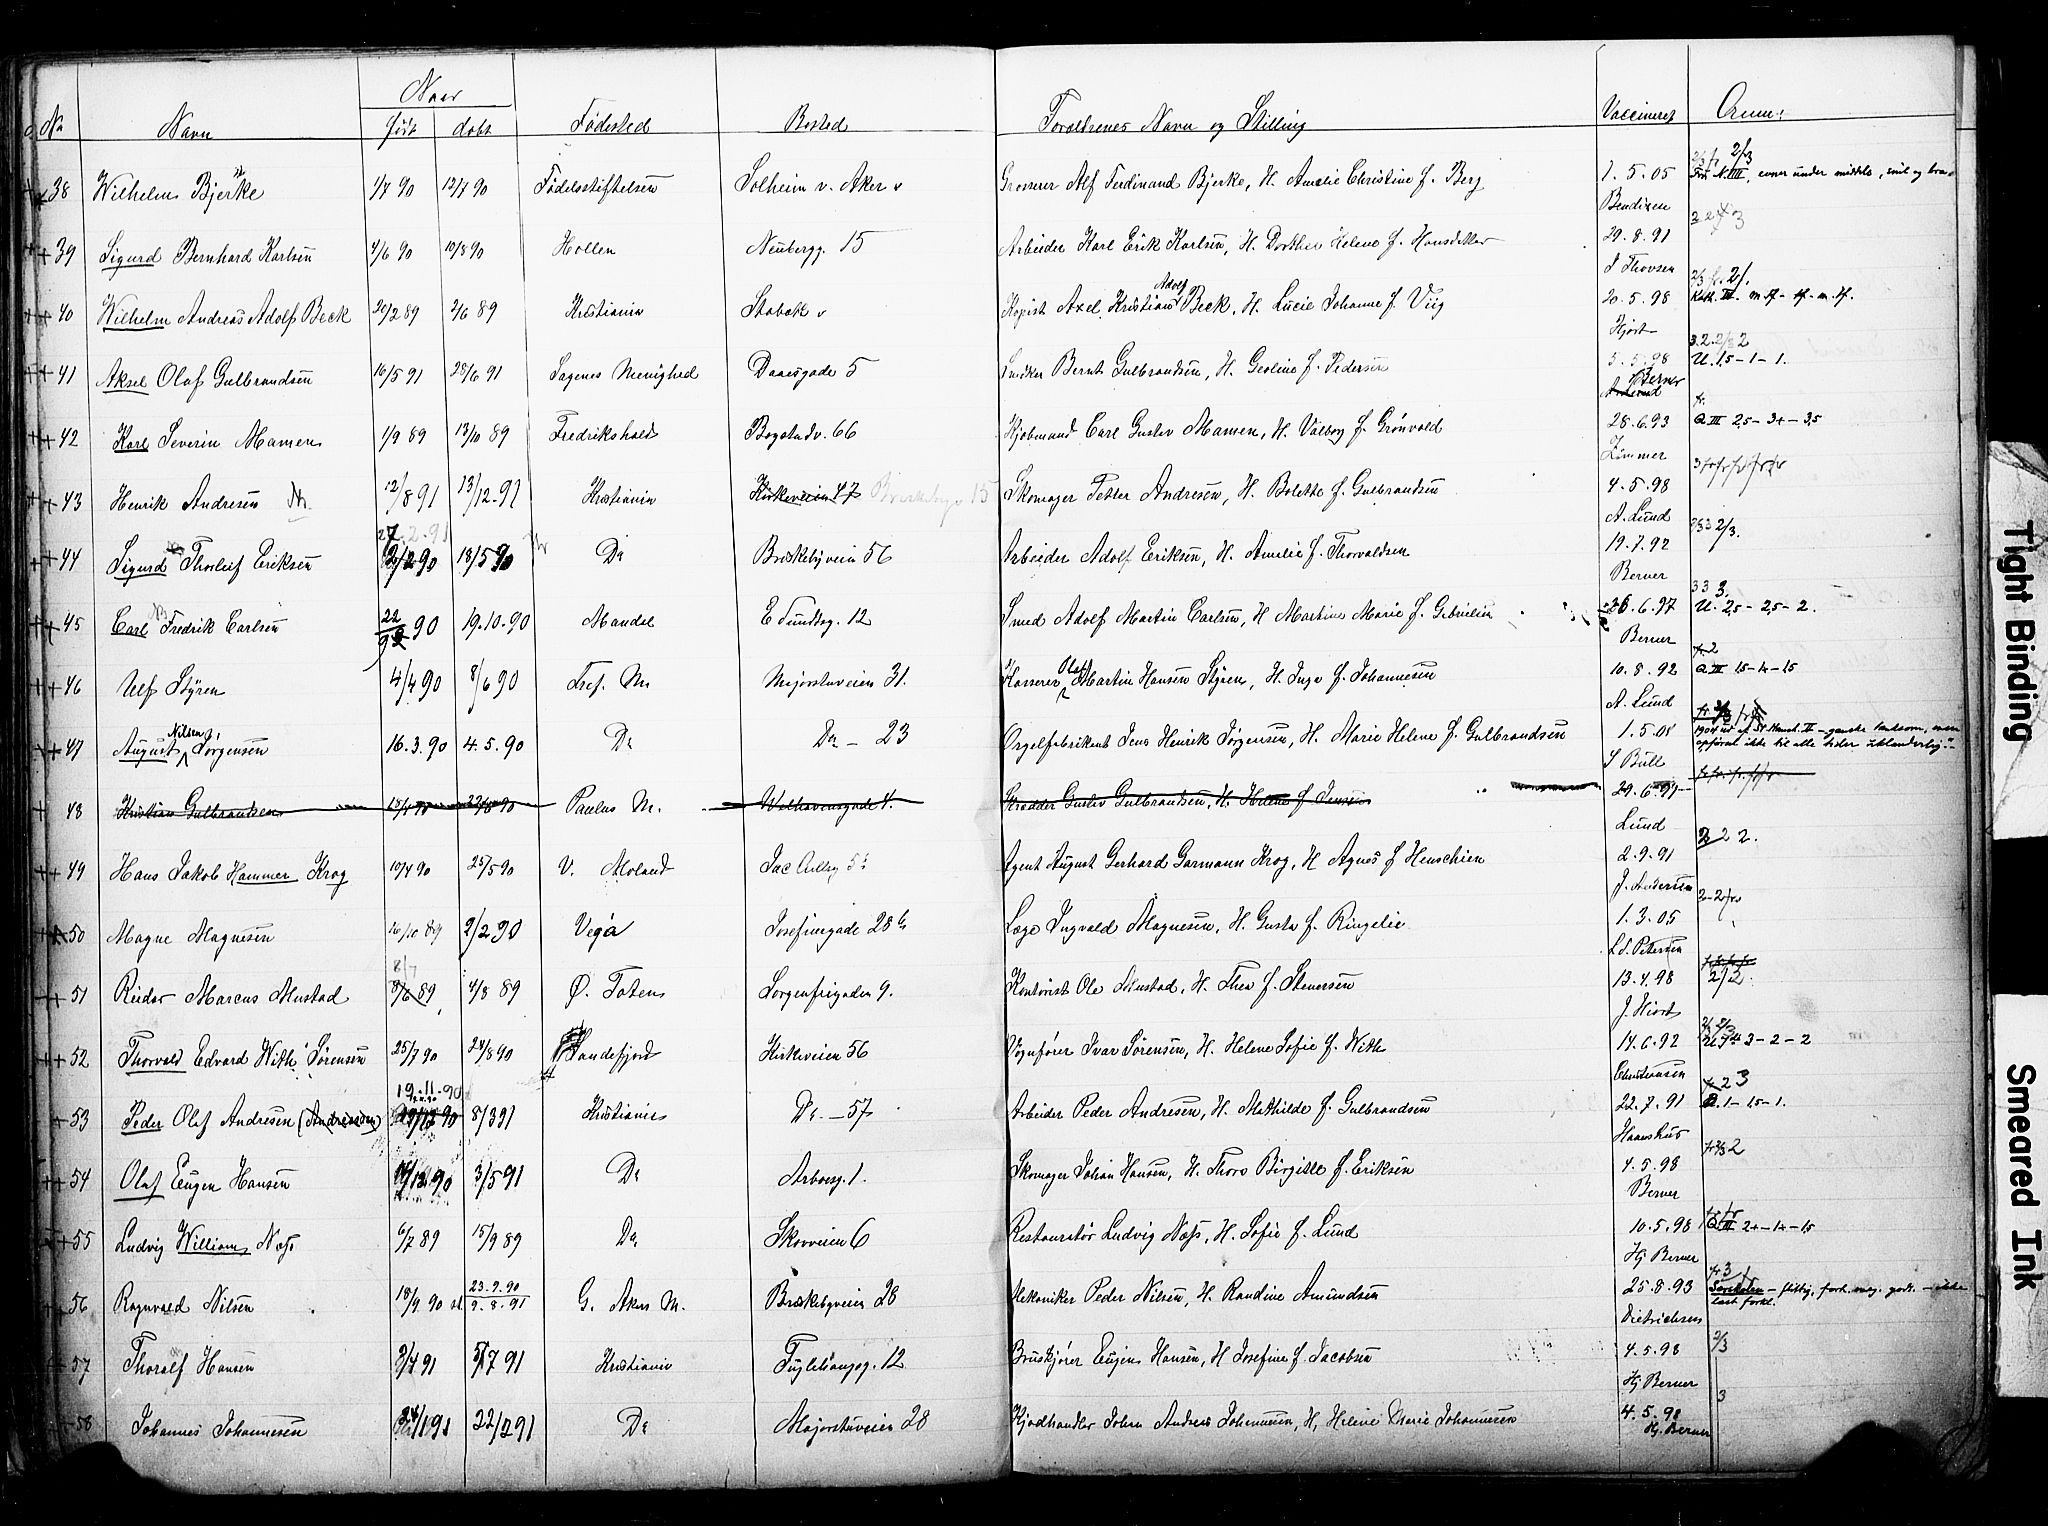 Naar
No Navn født døbt Fødested Bosted Forældrenes Navn og Stilling Vaccineret Anm:
38 Wilhelm Bjerke 1/7 90 12/7 90 Fødselsstiftelsen Solheim v. Aker v Grosserer Alf Ferdinand Bjerke, H. Amalie Christine f. Berg 1. 5. 05 evner under middels, snil og bra
Bendixen
39 Sigurd Bernhard Karlsen 4/6 90 10/8 90 Hollen Neubergg. 15 Arbeider Karl Erik Karlsen, H. Dorthea Helene f. Hansdatter 29. 8. 91
J Thovsen
Adolf
40 Wilhelm Andreas Adolf Beck 26/2 89 2/6 89 Kristiania Stabæk v Kopist Axel Kristian Beck, H. Lucie Johanne f. Viig 20. 5. 98
Hjort
41 Aksel Olaf Gulbrandsen 16/5 91 28/6 91 Sagenes Menighed Daasgade 5 Snedker Bernt Gulbrandsen, H. Geoline f. Pedersen 5. 5. 98 U. 1,5 - 1 - 1.
Berner
42 Karl Severin Mamen 1/9 89 13/10 89 Fredrikshald Bogstadv. 66 Kjøbmand Carl Gustav Mamen, H. Valborg f. Grønvold 28. 6. 93 Q III 2,5 - 3+ - 3,5
Zimmer
43 Henrik Andresen 12/8 91 13/12 91 Kristiania Kirkeveien 47 15 Skomager Petter Andresen, H. Bolette f. Gulbrandsen 4. 5. 98
A. Lund
27. 2. 91
44 Sigurd Thorleif Eriksen 2/2 90 18/5 90 Do Briskebyveien 56 Arbeider Adolf Eriksen, H. Amelie f. Thorvaldsen 19. 7. 92
Berner
45 Carl Fredrik Carlsen 22/9 90 19. 10. 90 Mandal E Sundtsg. 12 Smed Adolf Martin Carlsen, H Martine Marie f. Gabrielsen 26. 6. 97 U. 2,5 - 2,5 - 2.
Berner
Olaf
46 Ulf Styren 4/4 90 8/6 90 Tref. M. Majorstuveien 31. Kasserer Martin Hansen Styren, H. Inga f. Johannesen 10. 8. 92 Q III 1,5 - 1 - 1,5
A. Lund
Nilsen
47 August Jørgensen 16. 3. 90 4. 5. 90 Do Do - 23 Orgelfabrikent Jens Henrik Jørgensen, H. Marie Helene f. Gulbrandsen 1. 5. 05
opførsel ikke til alle tider uklanderlig."
J Bull
48 Kristian Gulbrandsen Paulus M. Welhavensgade 4. Skrædder Gustav Gulbrandsen, H. Helene f Jensen 29. 6. 94
Lund
49 Hans Jakob Hammer Krog 10/4 90 25/5 90 V. Moland Jac Aallsg 5 Agent August Gerhard Garmann Krog, H Agnes f Henschien 2. 9. 91 2 2 2.
J. Andersen
50 Magne Magnesen 26/10 89 2/2 90 Vega Josefinegade 28 b Læge Ingvald Magnesen, H. Gusta f. Ringelie 1. 3. 05
L.S. Petersen
51 Reidar Marcus Mustad 8/6 89 4/8 89 Ø. Toten Sorgenfrigaden 9. Kontorist Ole Mustad, H. Thea f. Stenersen 13. 4. 98
J. Hiort
52 Thorvald Edvard With Sørensen 25/7 90 24/8 90 Sandefjord Kirkeveien 56 Vognfører Ivar Sørensen, H. Helene Sofie f. With 14. 6. 92 3 - 2 - 2
Christiansen
19. 11. 90
53 Peder Olaf Andresen (Andreassen) 8/3 91 Kristiania Do - 57 Arbeider Peder Andresen, H. Mathilde f. Gulbrandsen 22. 7. 91 1 - 1,5 - 1.
Haaeshus
54 Olaf Eugen Hansen 12 90 3/5 91 Do Arboesg. 1. Skomager Johan Hansen, H. Thora Birgitte f. Eriksen 4. 5. 98
Berner
55 Ludvig William Næss 6/7 89 15/9 89 Do Skovveien 6 Restauratør Ludvig Næss, H. Sofie f. Lund 10. 5. 98 Q III 2+ - 1+ - 1,5
Hj Berner
23. 9. 90
56 Ragnvald Nilsen 18/9 90 9. 8. 91 G. Aker M. Briskebyveien 28 Mekaniker Peder Nilsen, H. Randine Amundsen 25. 8. 93
Dietrichsen
57 Thoralf Hansen 3/4 91 5/7 91 Kristiania Fuglehaugg. 12 Bruskjører Eugen Hansen, H Josefine f. Jacobsen 4. 5. 98 2/3
Hj Berner
58 Johannes Johannesen 22/2 91 Do Majorstuveien 28 Kjødhandler Johan Andreas Johannesen, H. Helene Marie Johannesen 4. 5. 98 3
Hj. Berner
Tight Binding
Smeared Ink